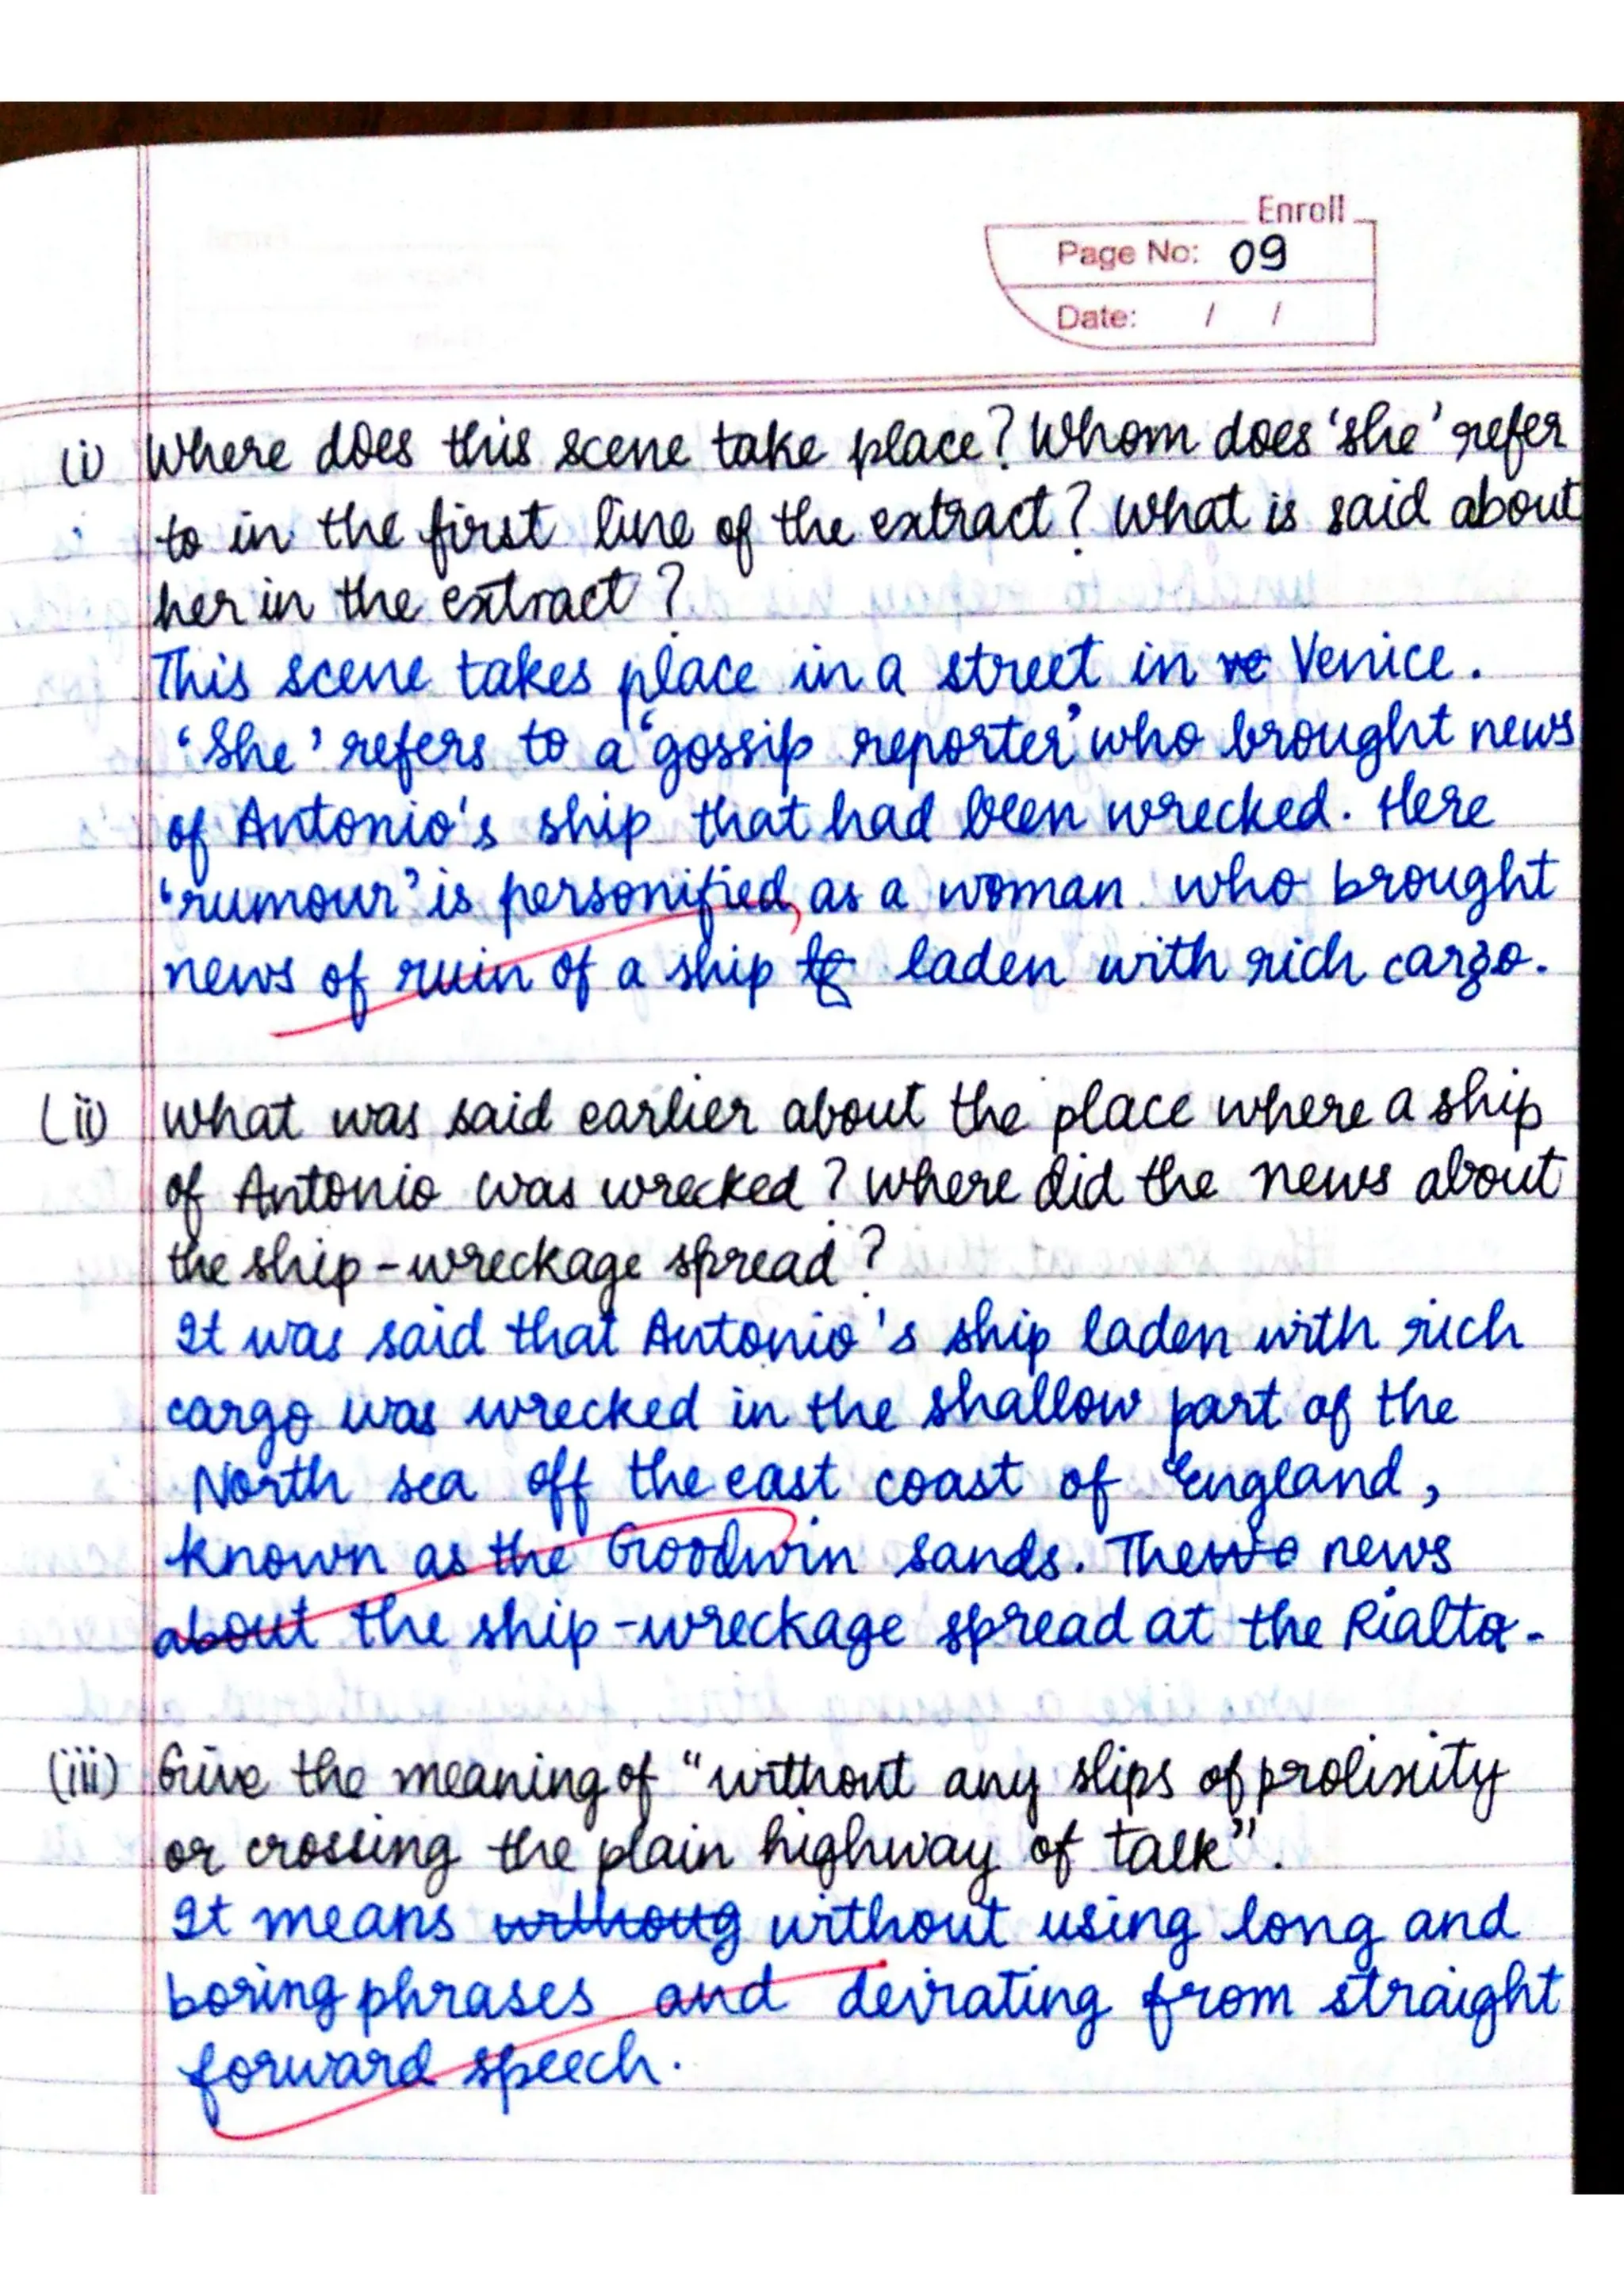 Enroll
Page No: 09
Date: / /
(i) Where does this scene take place? Whom does 'she' refer
to in the first line of the extract? What is said about
her in the extract?
This scene takes place in a street in ve Venice.
'She' refers to a 'gossip reporter' who brought news
of Antonio's ship that had been wrecked. Here
'rumour' is personified as a woman who brought
news of ruin of a ship laden with rich cargo.
(ii) What was said earlier about the place where a ship
of Antonio was wrecked? Where did the news about
the ship-wreckage spread?
It was said that Antonio's ship laden with rich
cargo was wrecked in the shallow part of the
North sea off the east coast of England,
known as the Goodwin sands. The news
about the ship-wreckage spread at the Rialto.
(iii) Give the meaning of "without any slips of prolixity
or crossing the plain highway of talk".
It means withoug without using long and
boring phrases and deirating from straight
forward speech.